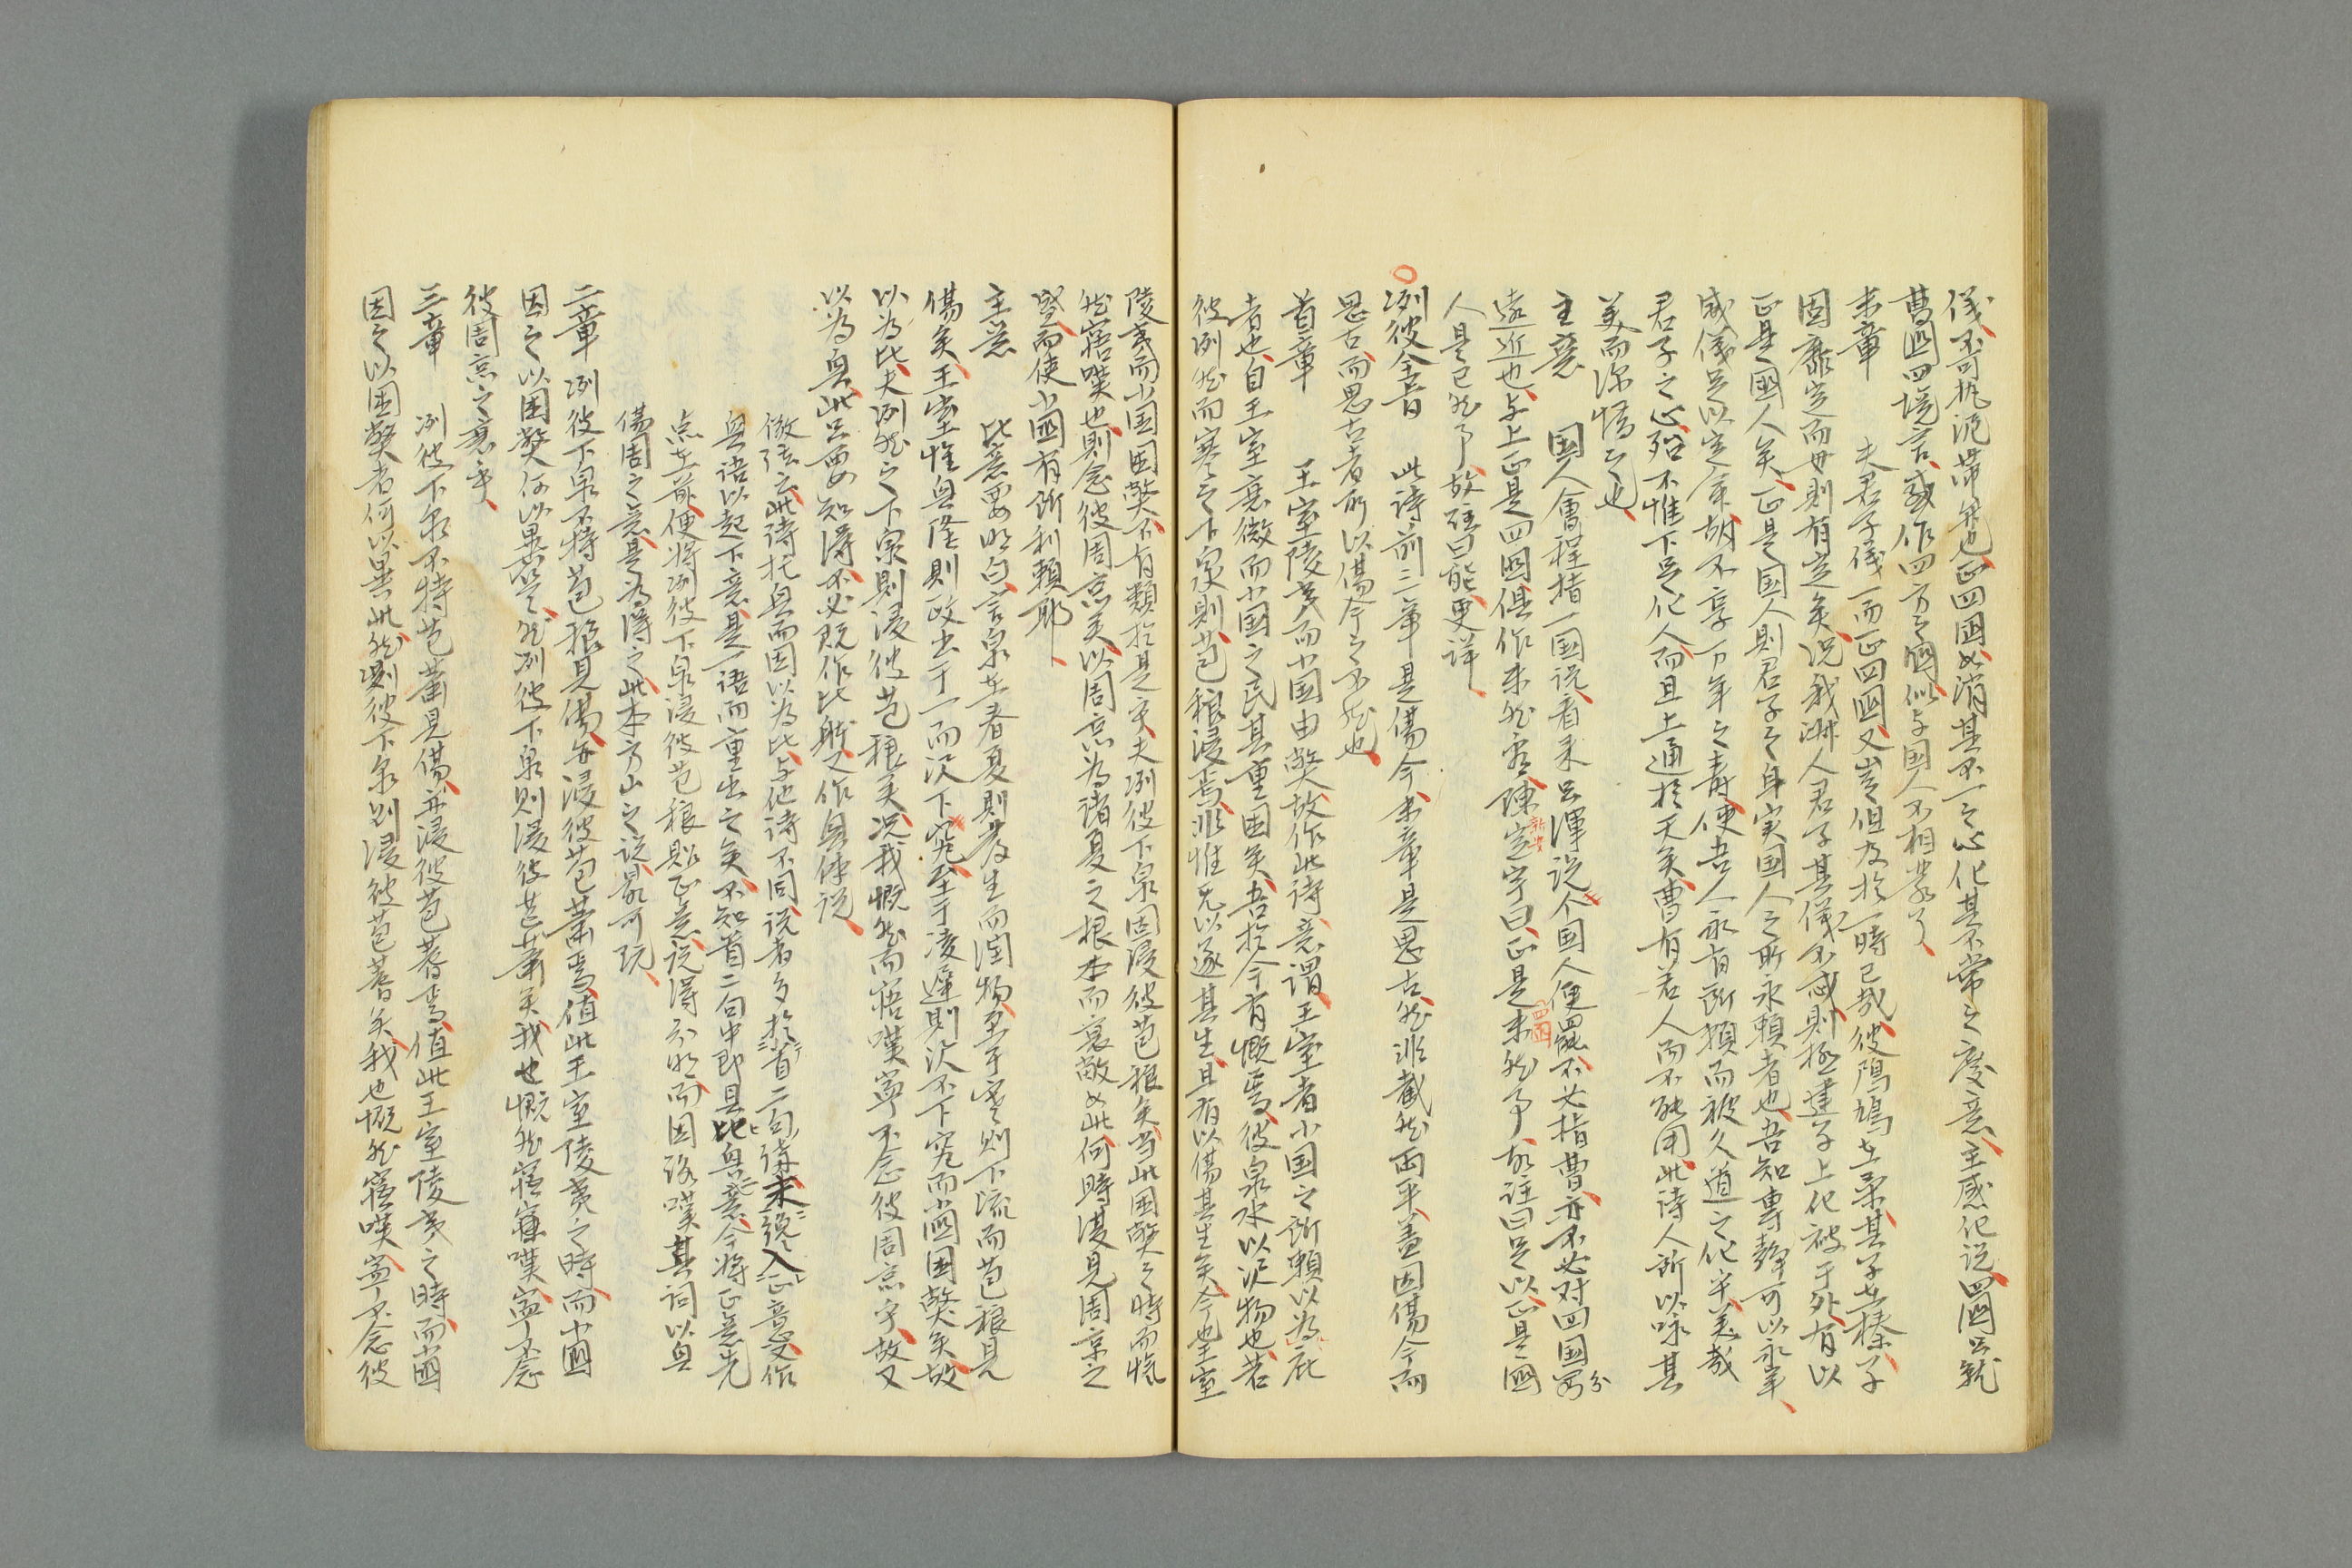 儀不可執泥帶弁也正四國必消其不一之心化其不常之度意主感化說四國只就
曹國四境言或作四方之國似与国人不相蒙了
末章　夫君子儀一而正四國又豈但及於一時已哉彼鳲鳩在桑其子在榛子
固靡定而毋則有定矣況我淑人君子其儀不忒則極建于上化被于外有以
正是國人矣正是国人則君子之身实国人之所永賴者也吾知專靜可以永年
威儀足以定命胡不享万年之寿使吾人永有所賴而被久道之化乎美哉
君子之心殆不惟下足化人而且上通於天矣曹有若人而不能用此詩人所以咏其
美而深惜之也
主意　国人會程指一国說看来只渾說个国人便罷不必指曹亦不必对四国分
遠近也与上正是四國俱作未然看陳定宇曰正是四國未然事故註曰足以正是國
人是已然事故註曰能更詳
○冽彼全旨　此詩前三章是傷今末章是思古然非截然兩平蓋因傷今而
思古而思古者所以傷今之不然也
首章　王室陵夷而小国由弊故作此詩意謂王室者小国之所賴以為庇
者也自王室衰微而小国之民其重困矣吾於今有慨焉彼泉水以沢物也若
彼冽然而寒之下泉則苞稂浸焉非惟无以遂其生且有以傷其生矣今也王室
陵夷而小国困弊不有類於是乎夫冽彼下泉固浸彼苞稂矣当此困弊之時而愾
然寤嘆也則念彼周京矣以周京為諸夏之根本而衰敝如此何時復見周京之
盛而使小國有所利賴耶
主意　比意要明白言泉在春夏則發生而潤物至于寒則下流而苞稂見
傷矣王室惟其隆則政出于一而沢下究至于凌遲則沢不下究而小國困弊矣故
以為比夫冽然之下泉則浸彼苞稂矣况我愾然而寤嘆寧不念彼周京乎故又
以為興此只要知得不必既作比觧又作興体說
徽弦云此詩托興而因以為比与他詩不同說者多於首二句講未說入正意便作
興語以起下意是一語而重出之矣不知首二句中即具比興意今將正意先
点在前便將冽彼下泉浸彼苞稂貼正意說得分明而因發嘆其詞以興
傷周之意是為得之此本方山之說最可玩
二章　冽彼下泉不特苞稂見傷亦浸彼苞蕭焉值此王室陵夷之時而小國
因之以困弊何以異是然冽彼下泉則浸彼苞蕭矣我也慨然寤寐嘆寧不念
彼周京之衰乎
三章　冽彼下泉不特苞蕭見傷亦浸彼苞蓍焉值此王室陵夷之時而小國
因之以困弊者何以異此然冽彼下泉則浸彼苞蓍矣我也愾然寤嘆寧不念彼